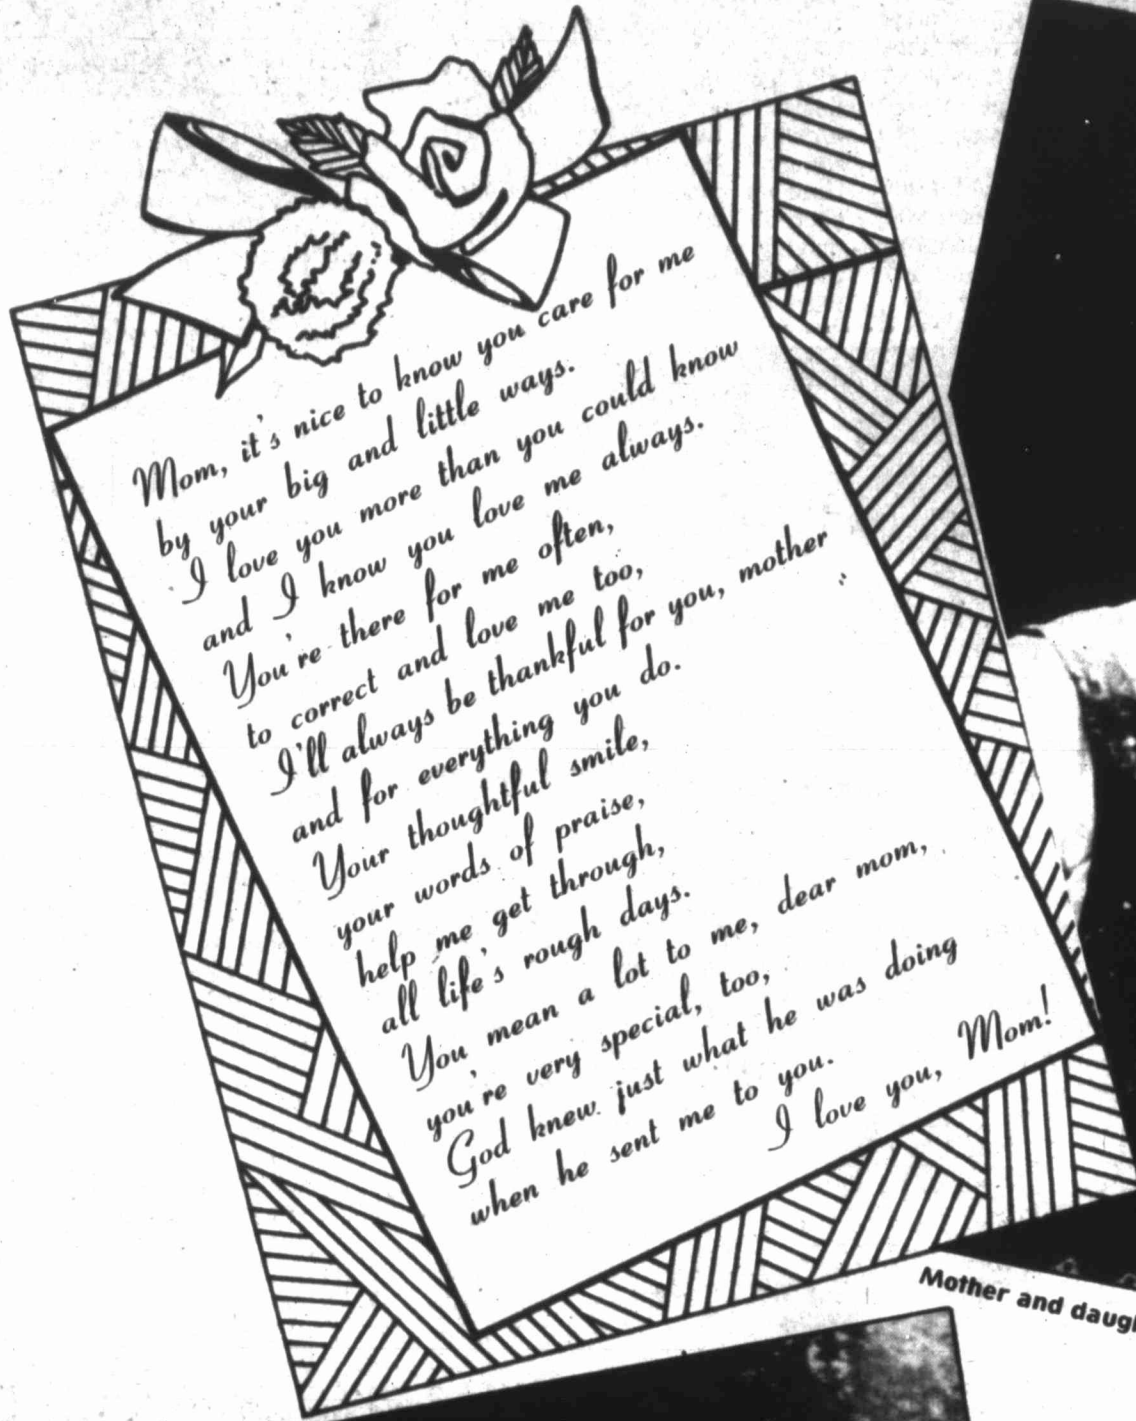 Mom, it's nice to know you care for me
by your big and little ways.
I love you more than you could know
and I know you love me always.
You're there for me often,
to correct and love me too,
I'll always be thankful for you, mother
and for everything you do.
Your thoughtful smile,
your words of praise,
help me get through,
all life's rough days.
You mean a lot to me, dear mom,
you're very special, too,
God knew just what he was doing
when he sent me to you.
I love you, Mom!
Mother and